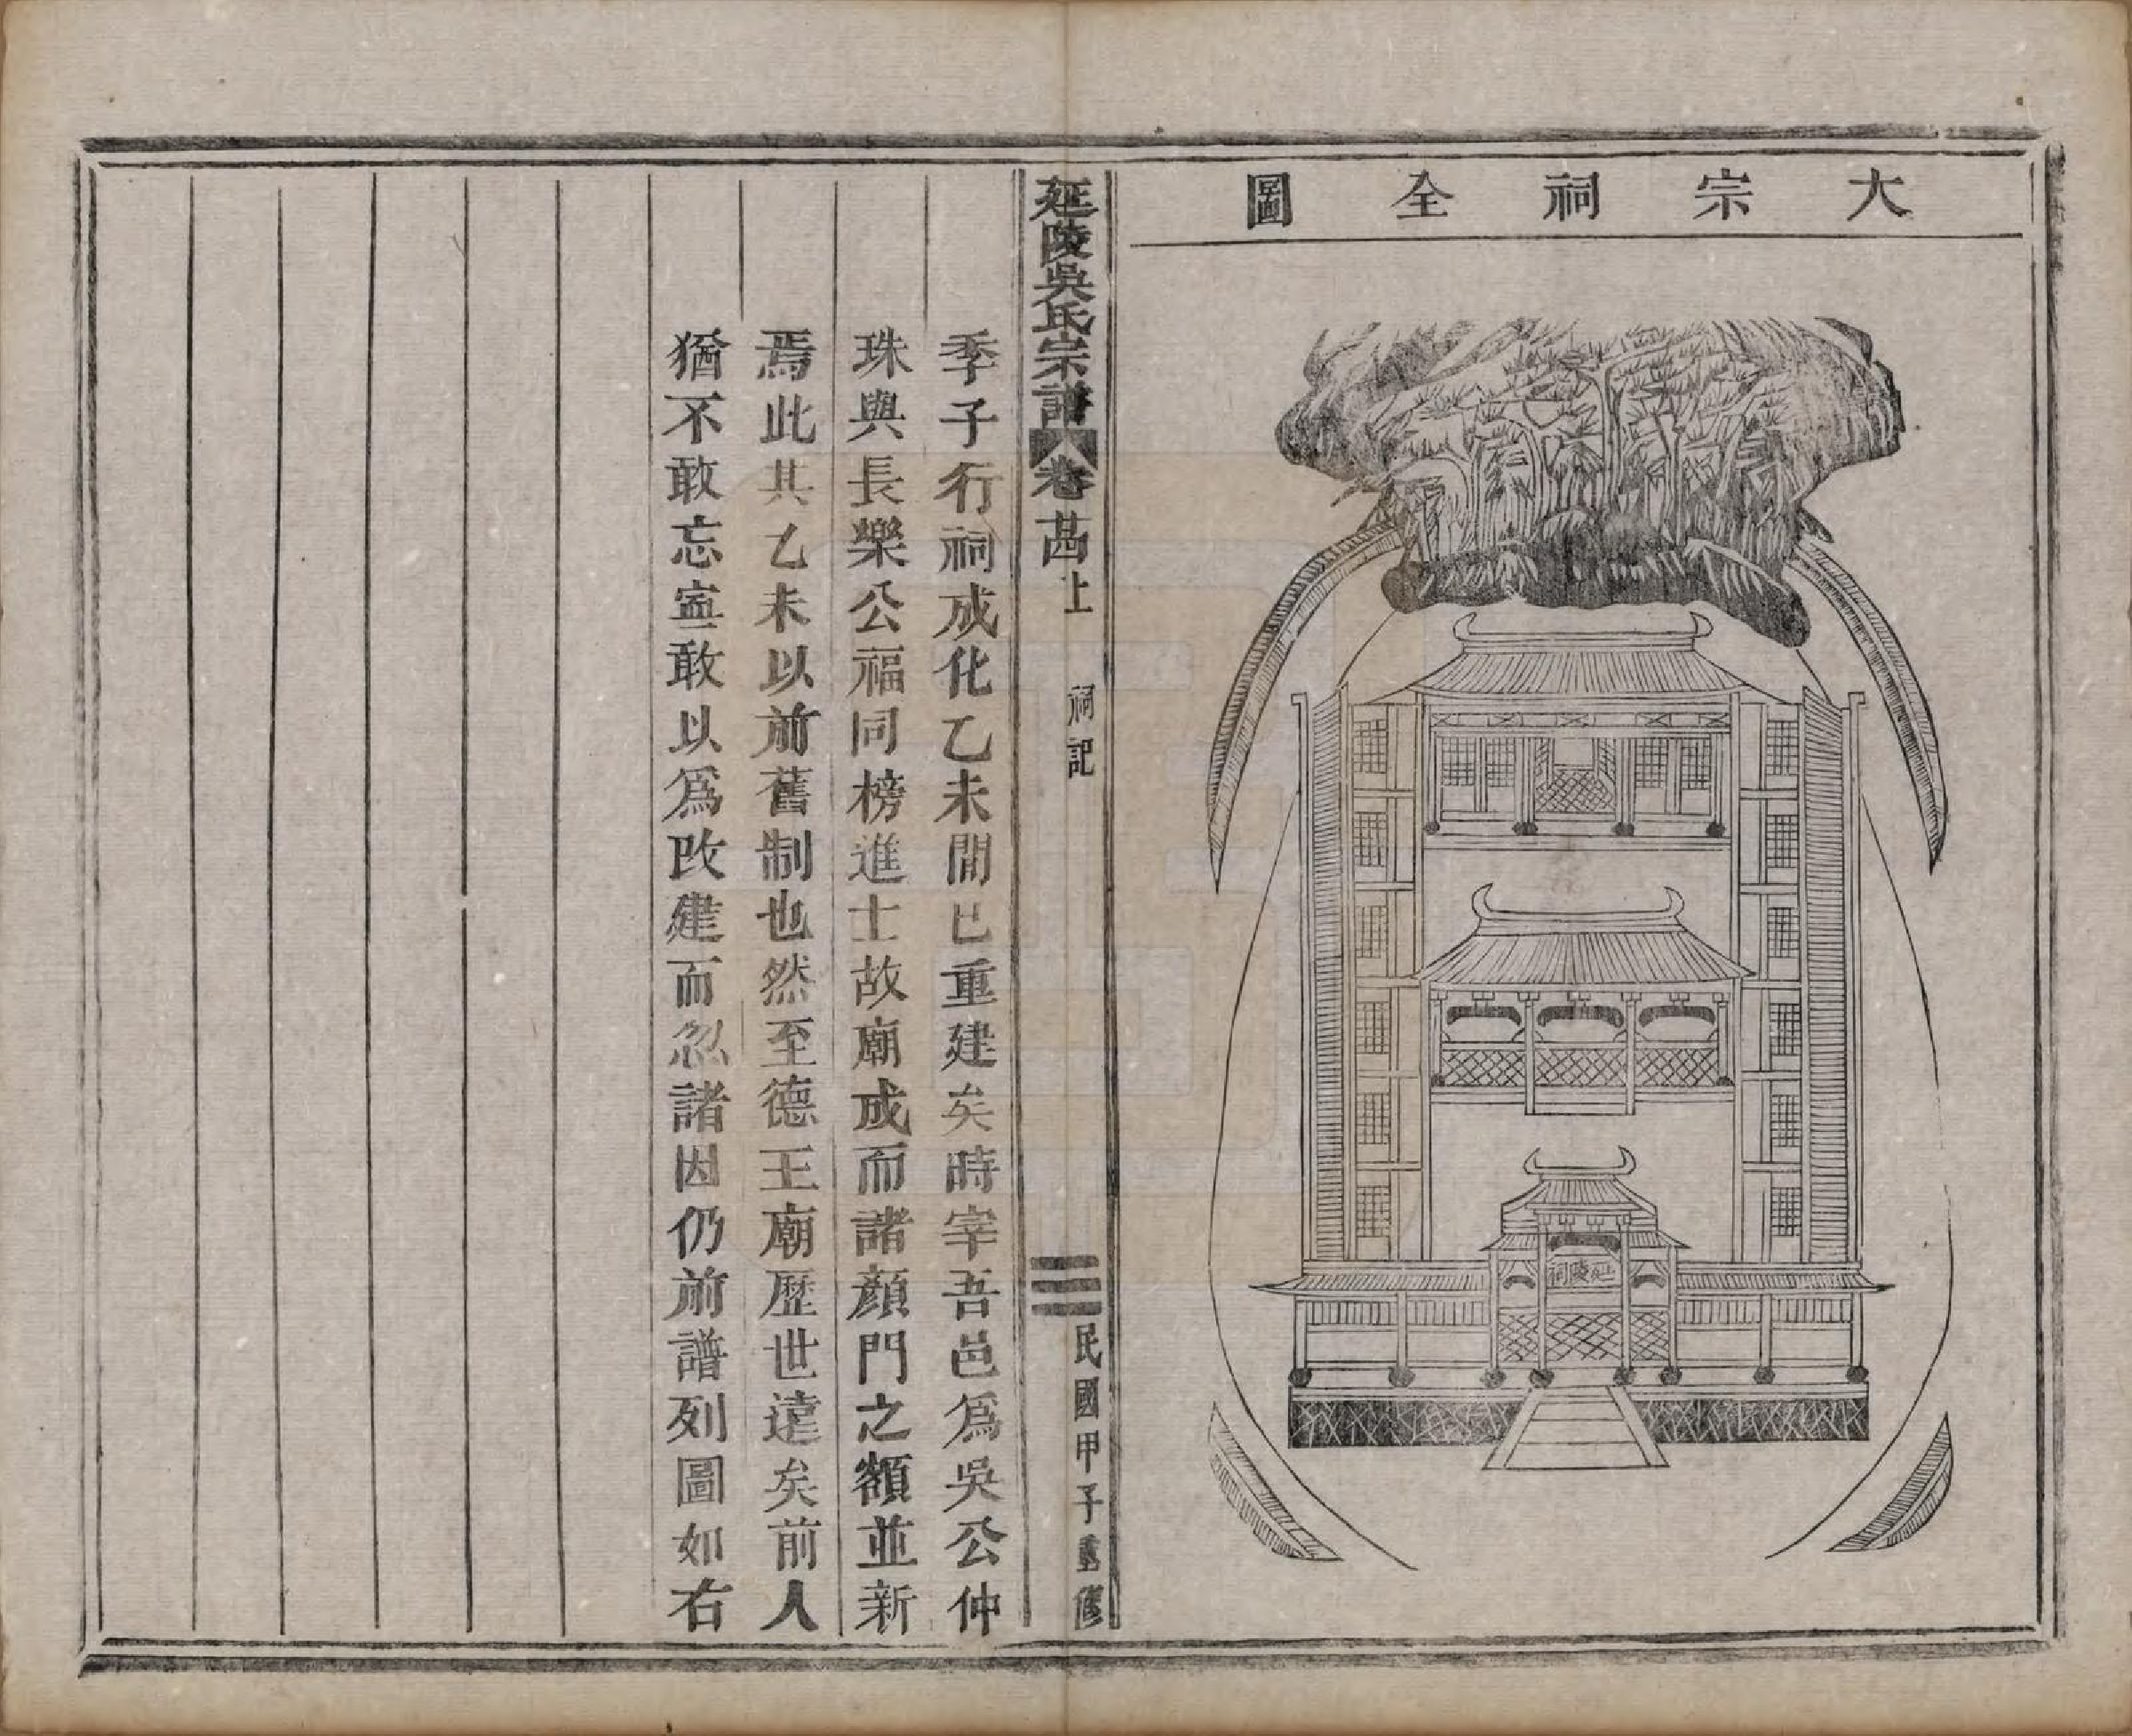 大宗祠全圖
延陵祠
延陵吳氏宗譜
卷茁上
祠記
三
民國甲子重修
季子行祠成化乙未間已重建矣時宰吾邑爲吳公仲
珠與長樂公福同榜進士故廟成而諸顔門之額並新
焉此其乙未以前舊制也然至德王廟歷世遠矣前人
猶不敢忘寧敢以爲改建而忽諸因仍前譜列圖如右